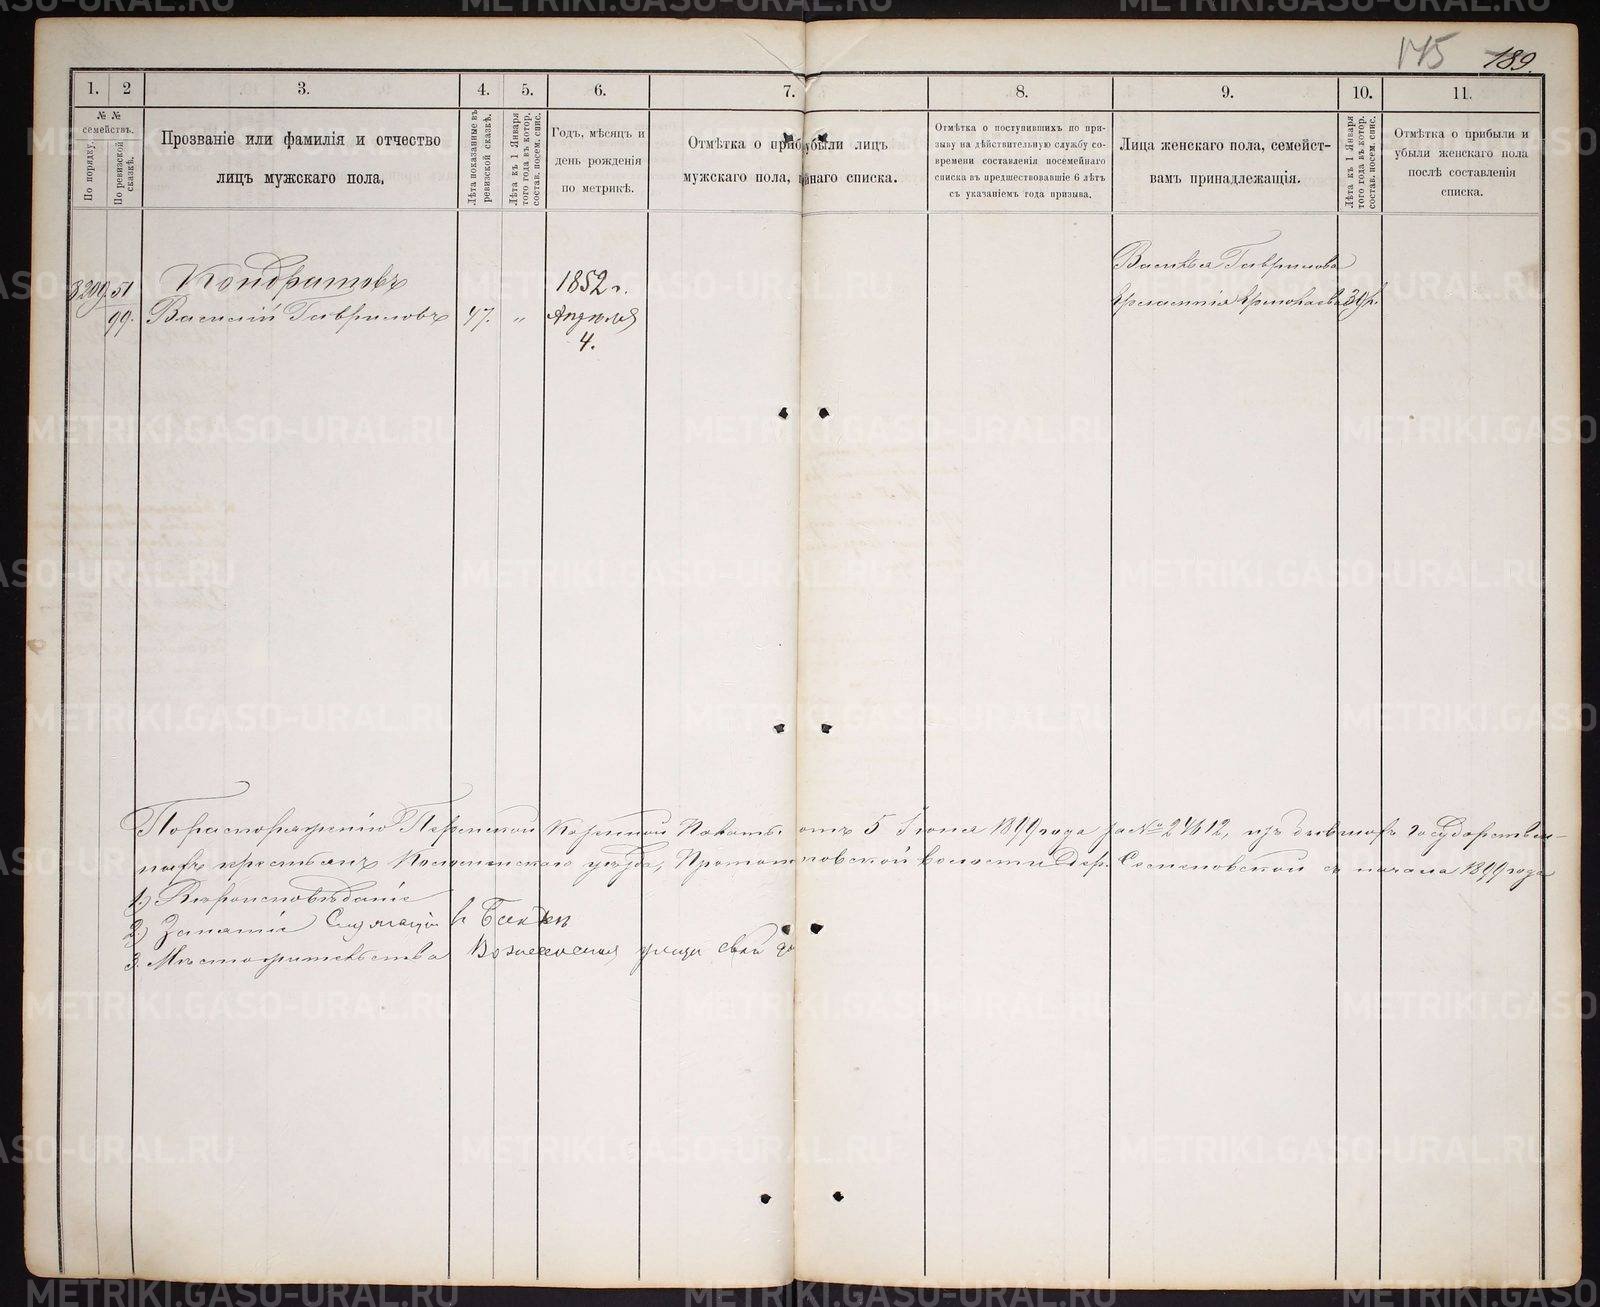 175 189.
1. 2 3. 4. 5. 6. 7. 8. 9. 10. 11.
№ №
семействъ.
По порядку.
По ревизской сказкѣ.
Прозваніе или фамилія и отчество
лицъ мужскаго пола,
Лѣта показанныe въ
ревизской сказкѣ.
Лѣта къ 1 Января
того года въ котор.
состав. посем. спис.
Годъ, мѣсяцъ и
день рожденія
по метрикѣ.
Отмѣтка о приб убыли лицъ
мужскаго пола, наго списка.
Отмѣтка о поступившихъ по при-
зыву на дѣйствительную службу со-
времени составленія посемейнаго
списка въ предшествовавшіе 6 лѣтъ
съ указаніемъ года призыва.
Лица женскаго пола, семейст-
вамъ принадлежащія.
Лѣта къ 1 Января
того года въ котор.
состав. посем. спис.
Отмѣтка о прибыли и
убыли женскаго пола
послѣ составленія
списка.
3209 51 Кондратовъ 1852 г.
99. Василій Гавриловъ 47. „ Апрѣля
4.
Василья Гаврилова
39
По распоряженію Пермской Казенной Палаты отъ 5 Іюня 1899 года за № 24612, изъ бывшихъ государствен-
ныхъ крестьянъ уѣзда, волости Дер. съ начала 1899 года
1) Вѣроисповѣданіе
2) Занятіе Служащій в Банкѣ
3. Мѣстожительства Вознесенская улица свой до
METRIKI.GASO-URAL.RU